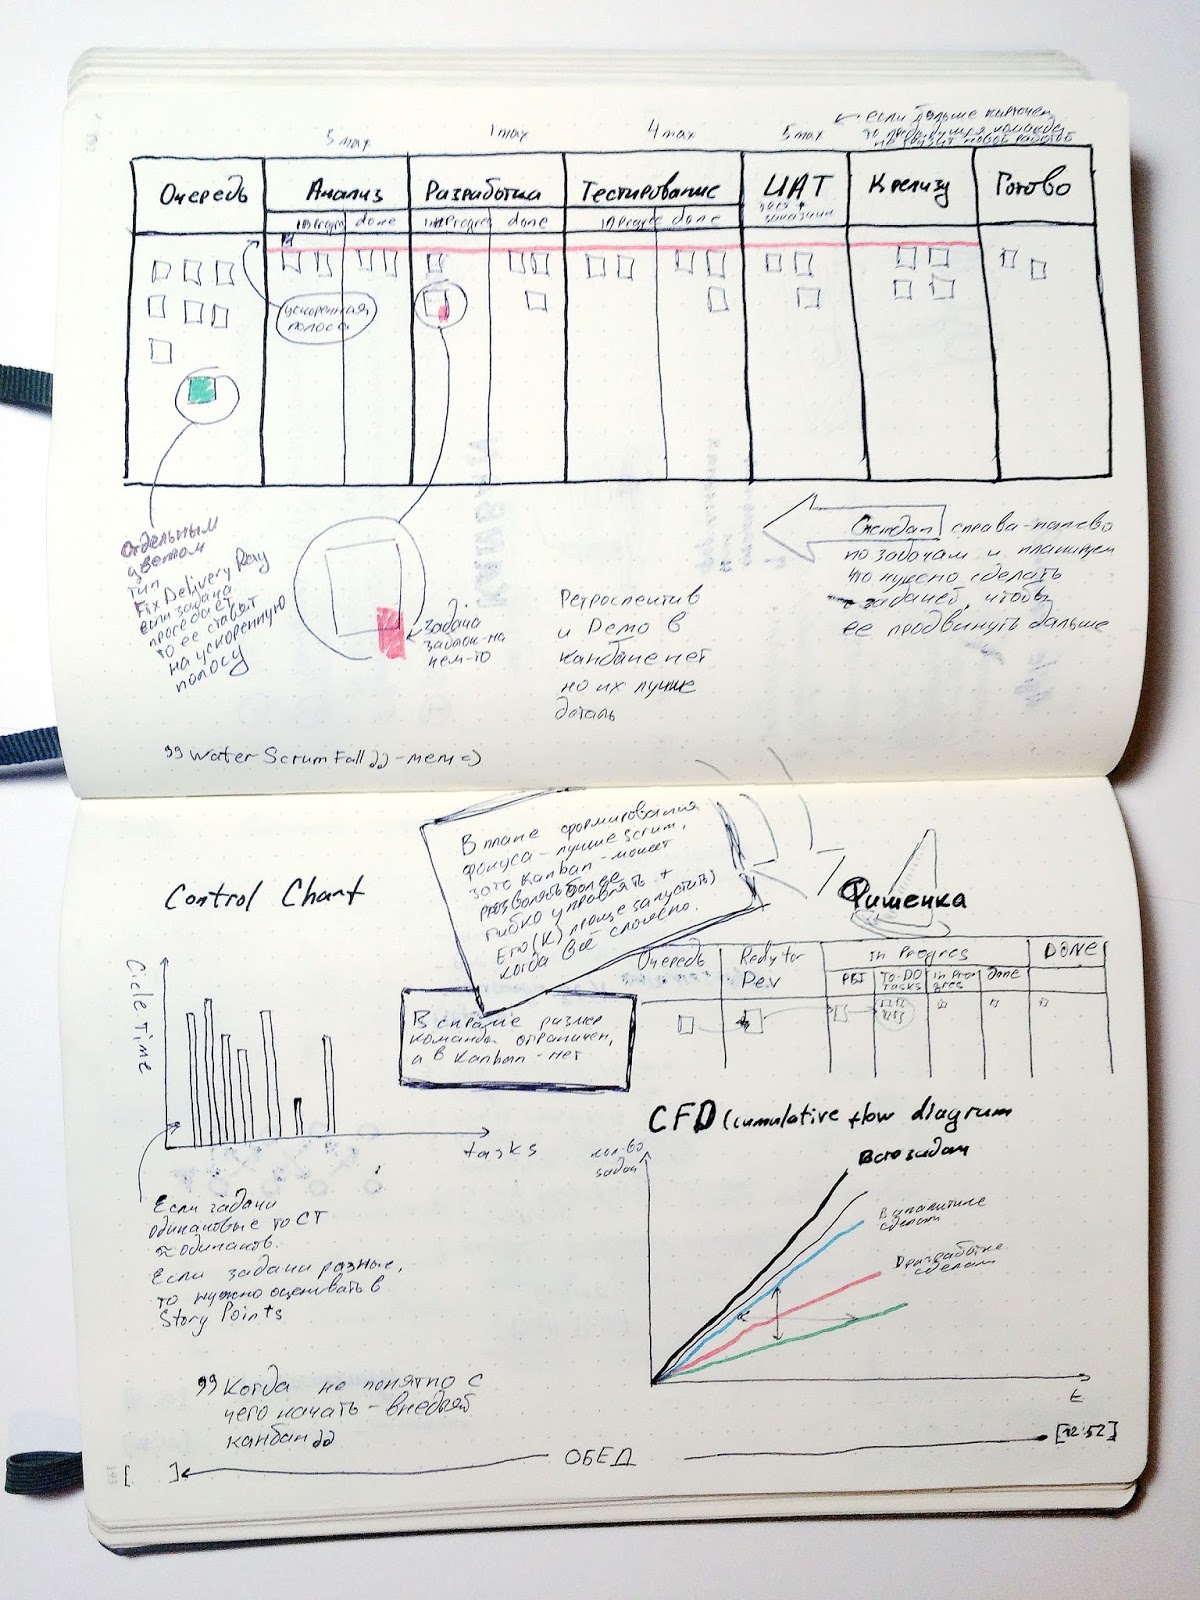 5 max
1 max
4 max
5 max
← если больше карточек,
то предыдущая команда
не грузит новой работой
Очередь
Анализ
Разработка
Тестирование
UAT
К релизу
Готово
inProgres
done
inProgres
done
inProgres
done
тест +
заказчик
ускоренная
полоса
Отдельным
цветом
тип
Fix Delivery Day
если задача
проседает,
то её ставят
на ускоренную
полосу
задача
заблок-на
чем-то
Ретроспектив
и Демо в
канбане нет
но их лучше
делать
Стендап справа-налево
по задачам и планируем
что нужно сделать
с задачей, чтобы
её продвинуть дальше
"Water Scrum Fall" - мем =)
Control Chart
Cicle Time
tasks
Если задачи
одинаковые то CT
≈ одинаков.
Если задачи разные,
то нужно оценивать в
Story Points
"Когда не понятно с
чего начать - внедряй
канбан"
В плане формирования
фокуса - лучше scrum,
зато Kanban - может
позволять более
гибко управлять +
Его (К) проще запустить)
когда всё сложно.
В скраме размер
команды ограничен,
а в Kanban - нет
Фишечка
Очередь
Redy for
Dev
In Progres
DONE
PBI
To-DO
Tasks
in Prog
res
done
CFD (cumulative flow diagram
кол-во
задач
Всего задач
В аналитике
сделали
В разработке
сделали
t
[ ]
ОБЕД
[12:52]